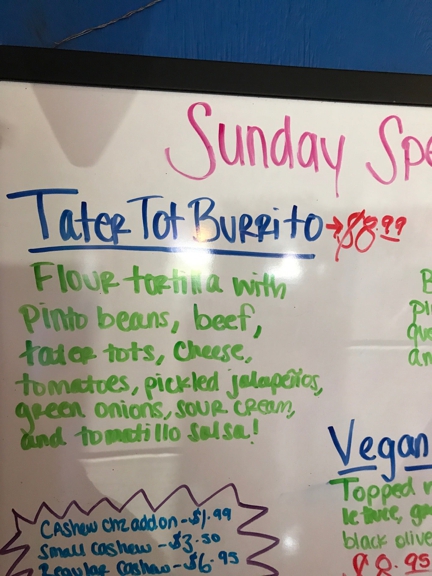 Sunday Spe
Tater Tot Burrito → $8.99
Flour tortilla with
pinto beans, beef,
tater tots, cheese,
tomatoes, pickled jalapeños,
green onions, sour cream,
and tomatillo salsa!
Vegan
Topped
lettuce,
black olive
$8.95
Cashew chz add on - $1.99
small cashew - $3.50
Regular cashew - $6.95